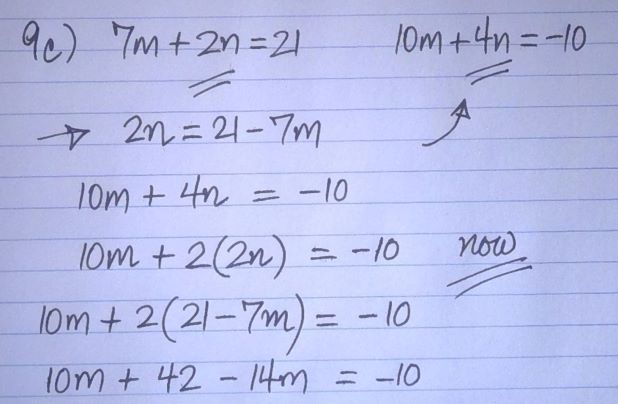 9c) 7m + 2n = 21 10m + 4n = -10
→ 2n = 21 - 7m
10m + 4n = -10
10m + 2(2n) = -10 now
10m + 2(21 - 7m) = -10
10m + 42 - 14m = -10